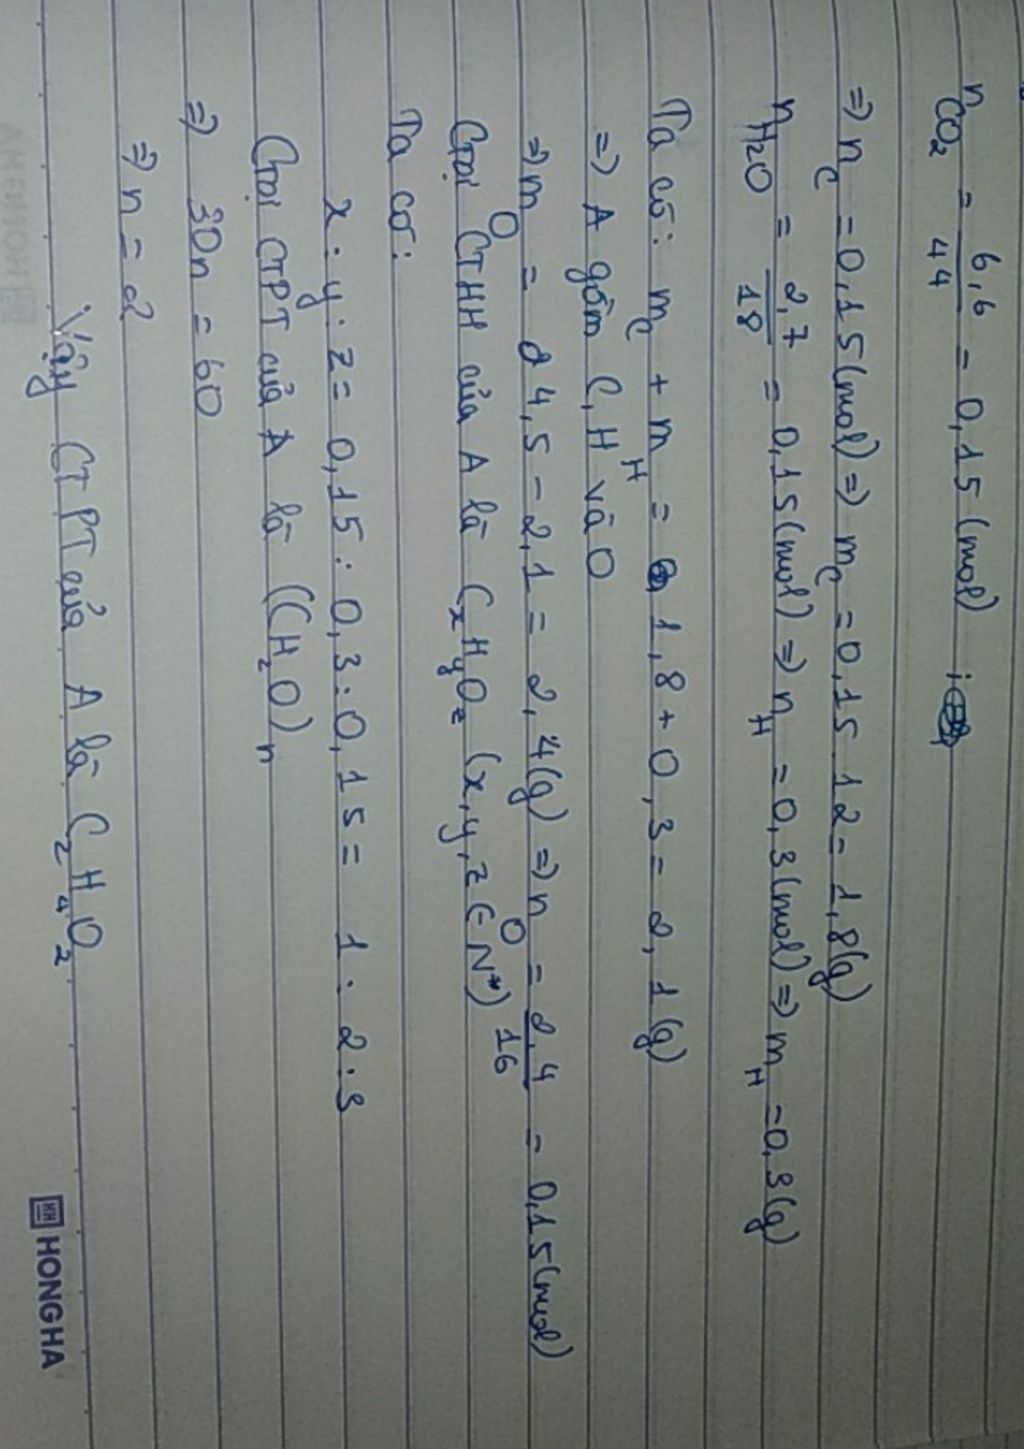 nCO2 = 6,6/44 = 0,15 (mol)
⇒ nC = 0,15 (mol) ⇒ mC = 0,15 . 12 = 1,8 (g)
nH2O = 2,7/18 = 0,15 (mol) ⇒ nH = 0,3 (mol) ⇒ mH = 0,3 (g)
Ta có: mC + mH = 1,8 + 0,3 = 2,1 (g)
⇒ A gồm C, H và O
⇒ mO = 4,5 - 2,1 = 2,4 (g) ⇒ nO = 2,4/16 = 0,15 (mol)
Gọi CTHH của A là CxHyOz (x, y, z ∈ N*)
Ta có:
x : y : z = 0,15 : 0,3 : 0,15 = 1 : 2 : 3
Gọi CTPT của A là (CH2O)n
⇒ 30n = 60
⇒ n = 2
Vậy CTPT của A là C2H4O2
HH HONG HA